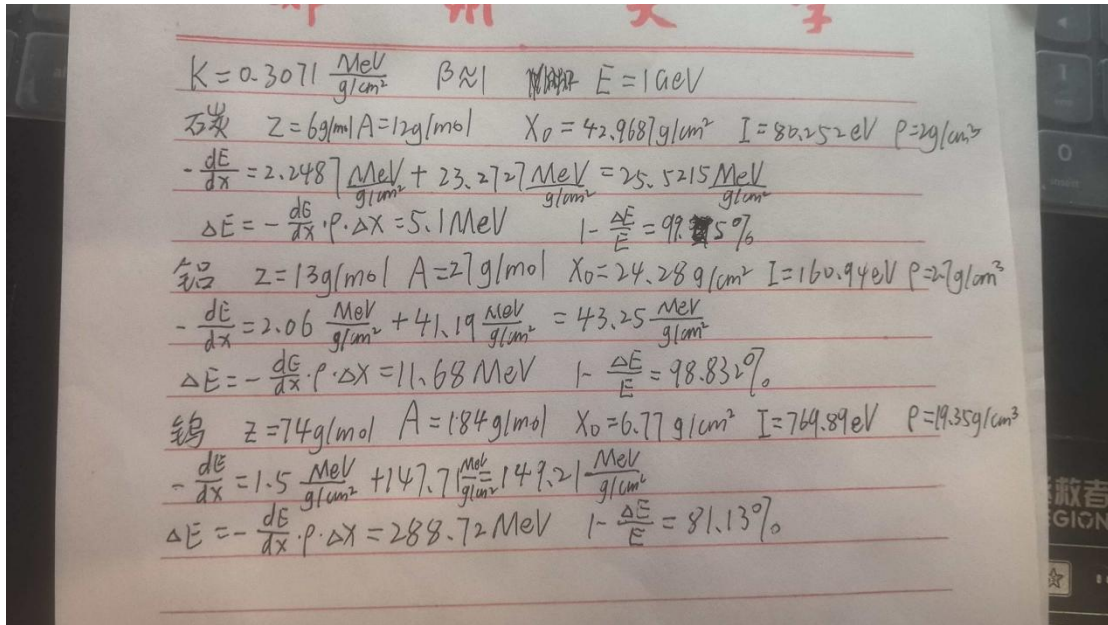 K=0.3071 MeV/g/cm² β≈1 E=1GeV
石炭 Z=6g/mol A=12g/mol X₀=42.9687g/cm² I=80.252eV ρ=2g/cm³
-dE/dx=2.2487 MeV/g/cm² + 23.2727 MeV/g/cm² = 25.5215 MeV/g/cm²
ΔE=-dE/dx·ρ·ΔX=5.1MeV 1-ΔE/E=99.5%
铝 Z=13g/mol A=27g/mol X₀=24.28g/cm² I=160.94eV ρ=2.7g/cm³
-dE/dx=2.06 MeV/g/cm² + 41.19 MeV/g/cm² = 43.25 MeV/g/cm²
ΔE=-dE/dx·ρ·ΔX=11.68MeV 1-ΔE/E=98.832%
钨 Z=74g/mol A=184g/mol X₀=6.77g/cm² I=769.89eV ρ=19.35g/cm³
-dE/dx=1.5 MeV/g/cm² +147.71 MeV/g/cm² = 149.21 MeV/g/cm²
ΔE=-dE/dx·ρ·ΔX=288.72MeV 1-ΔE/E=81.13%
救者
EGION